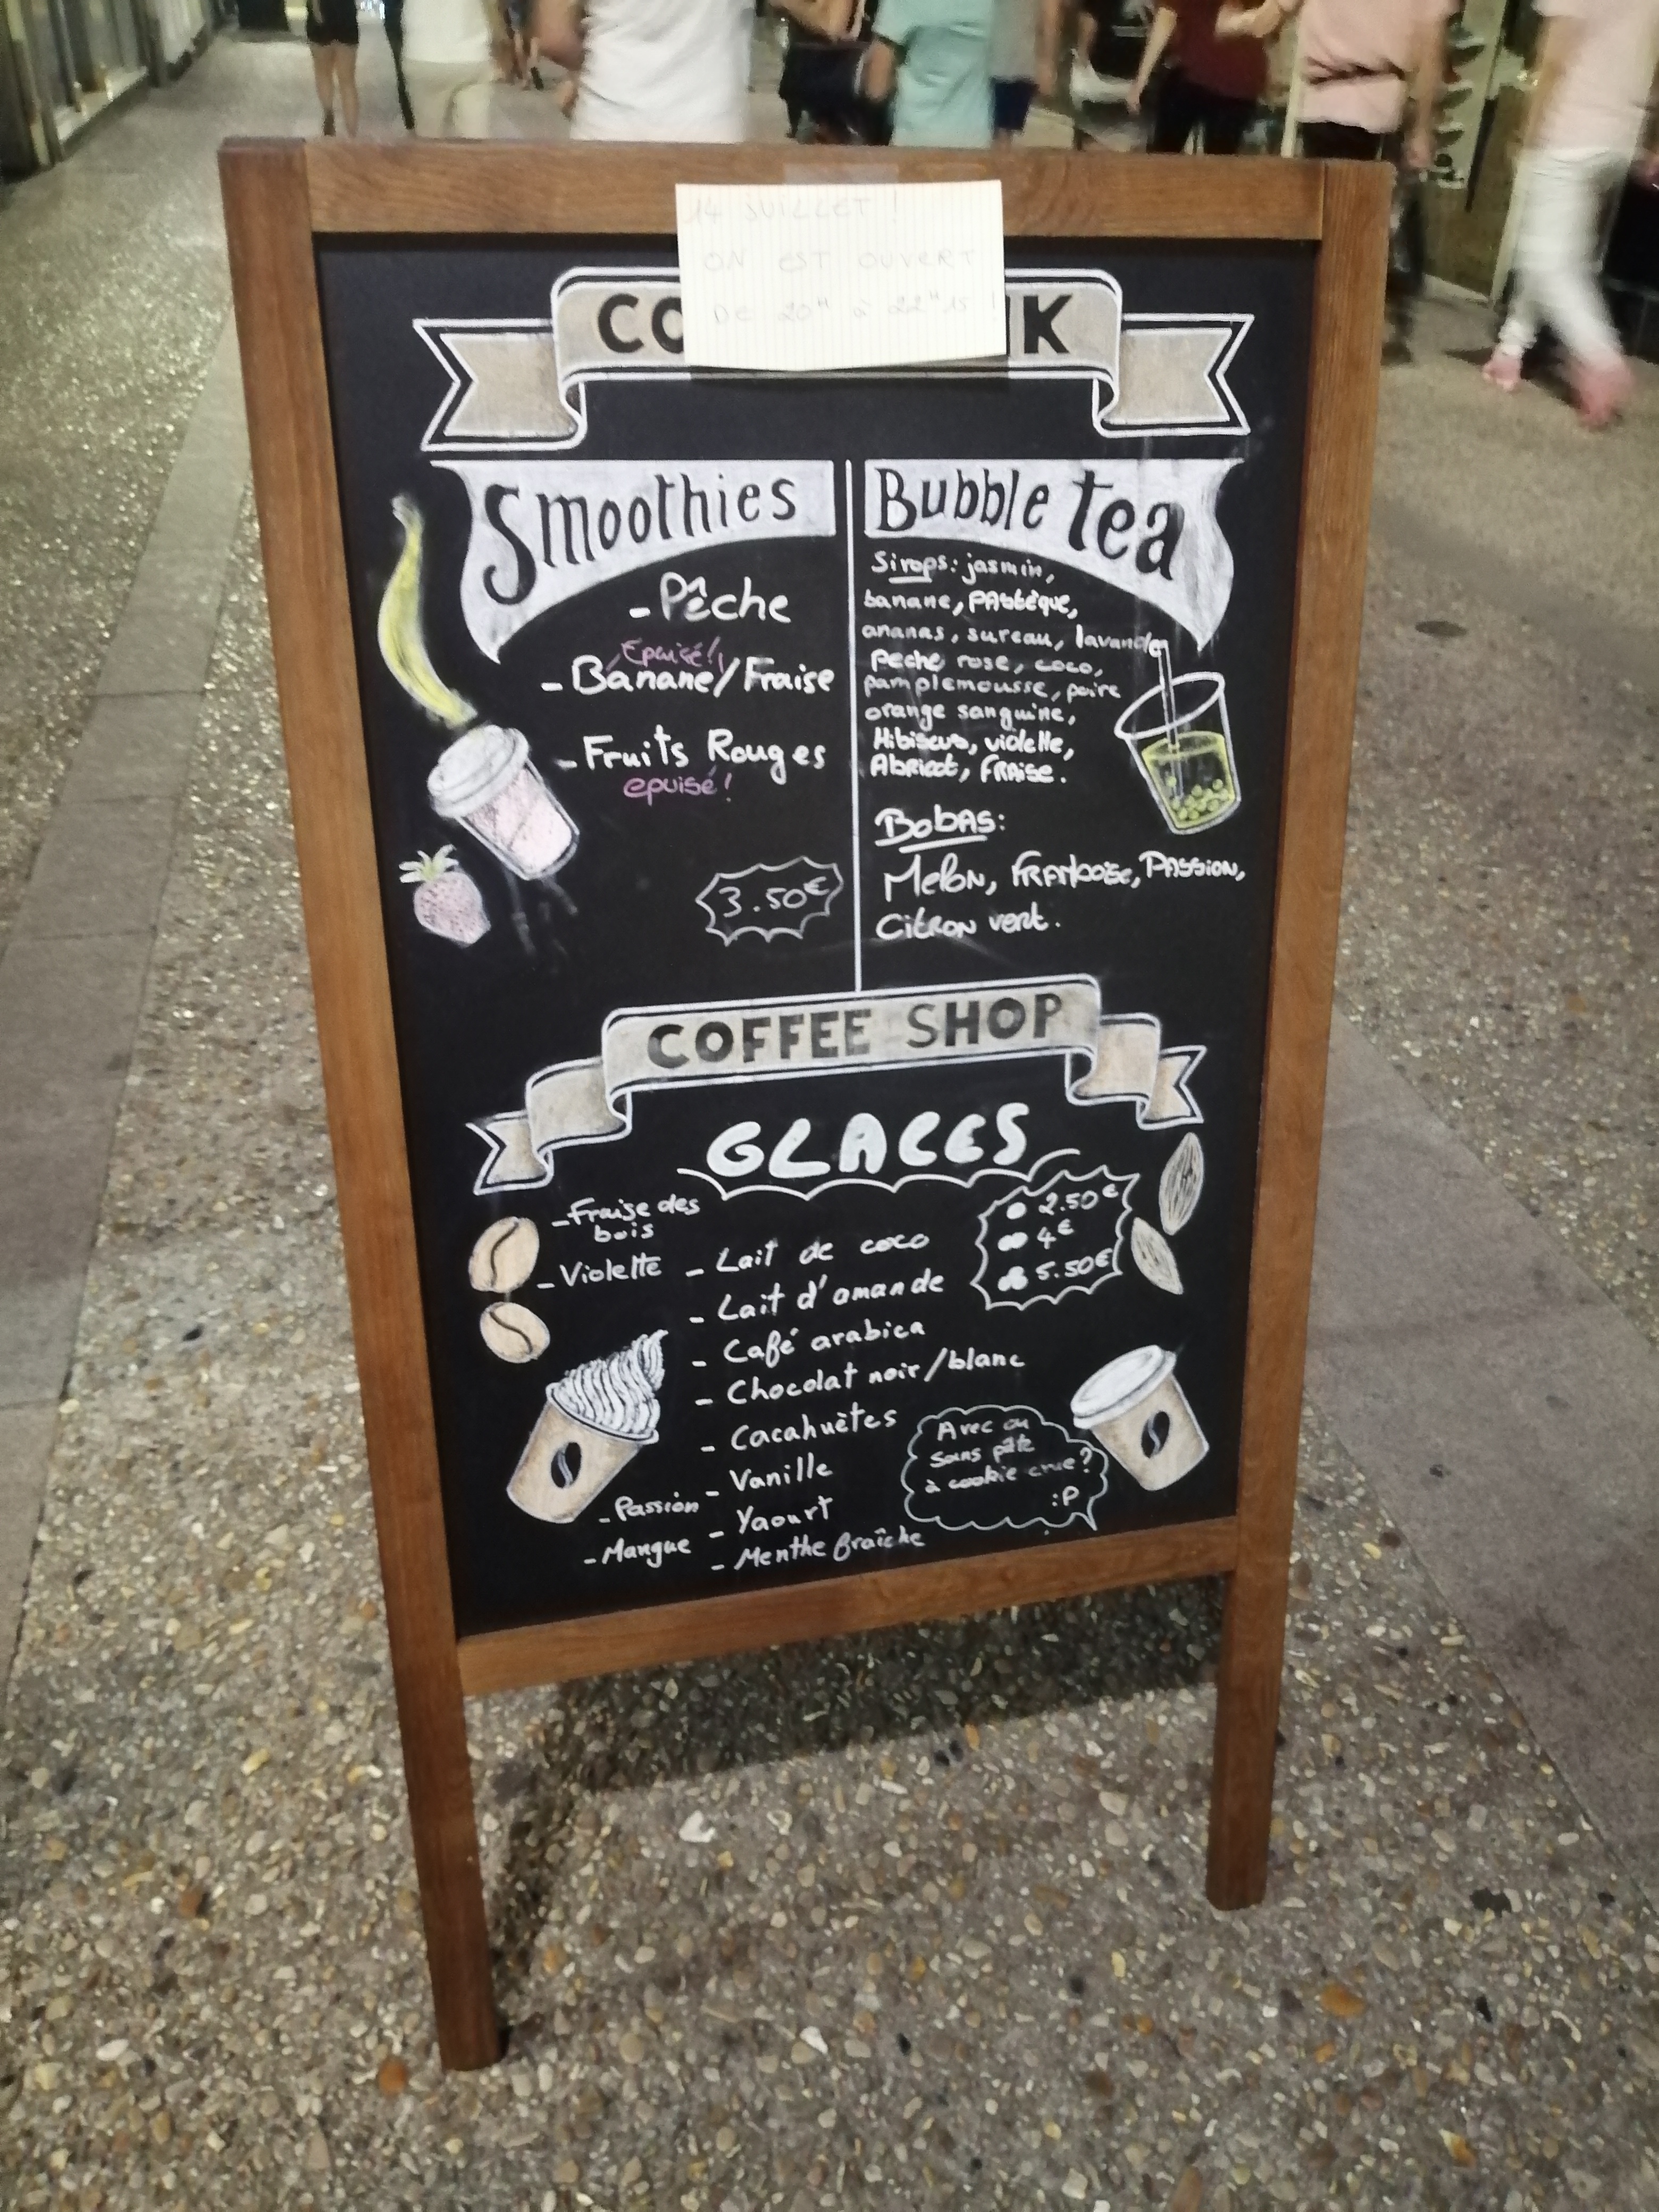 14 JUILLET !
ON EST OUVERT
DE 20H à 22H15 !
CO
K
Smoothies
- Pêche
Epuisé !
- Banane/Fraise
- Fruits Rouges
epuisé !
3.50€
Bubble tea
Sirops: jasmin,
banane, PAStèque,
ananas, sureau, lavande,
Peche rose, coco,
pamplemousse, poire
orange sanguine,
Hibiscus, violette,
Abricot, FRAise.
BobAS:
MeloN, FRAmboise, PASSioN,
CitRON vert.
COFFEE SHOP
GLACES
- Fraise des
bois
- Violette
- Lait de coco
- Lait d'amande
- Café arabica
- Chocolat noir/blanc
- Cacahuètes
- Vanille
- Passion
- Yaourt
- Mangue
- Menthe fraîche
2.50€
4€
5.50€
Avec ou
Sans pâte
à cookie crue ?
:P